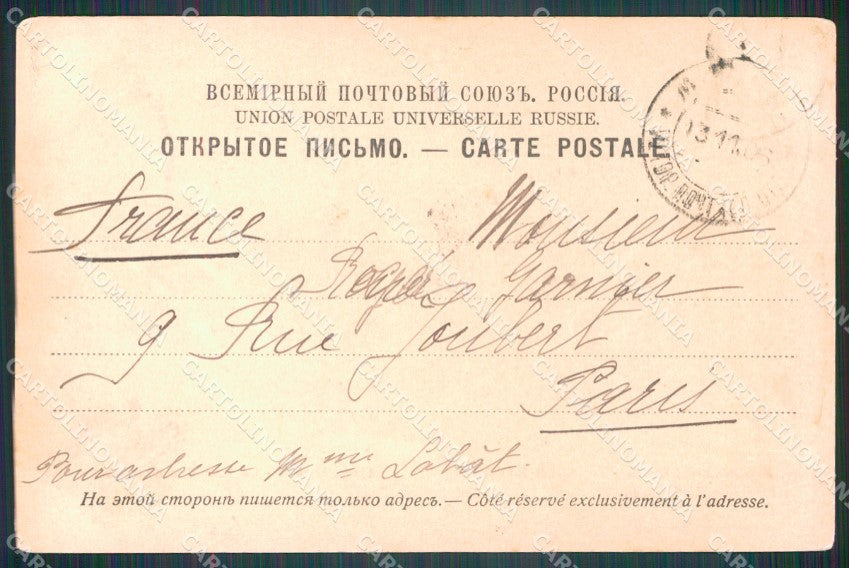 ВСЕМІРНЫЙ ПОЧТОВЫЙ СОЮЗЪ. РОССІЯ.
UNION POSTALE UNIVERSELLE RUSSIE.
ОТКРЫТОЕ ПИСЬМО. — CARTE POSTALE
France Monsieur
Roger Garnier
9 Rue Joubert
Paris
Mme Labât.
На этой сторонѣ пишется только адресъ. — Côté réservé exclusivement à l'adresse.
CARTOLINOMANIA